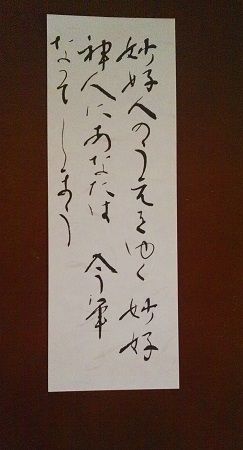 妙好人のうえをゆく 妙好
神人にあなたは 今軍
なってしまう